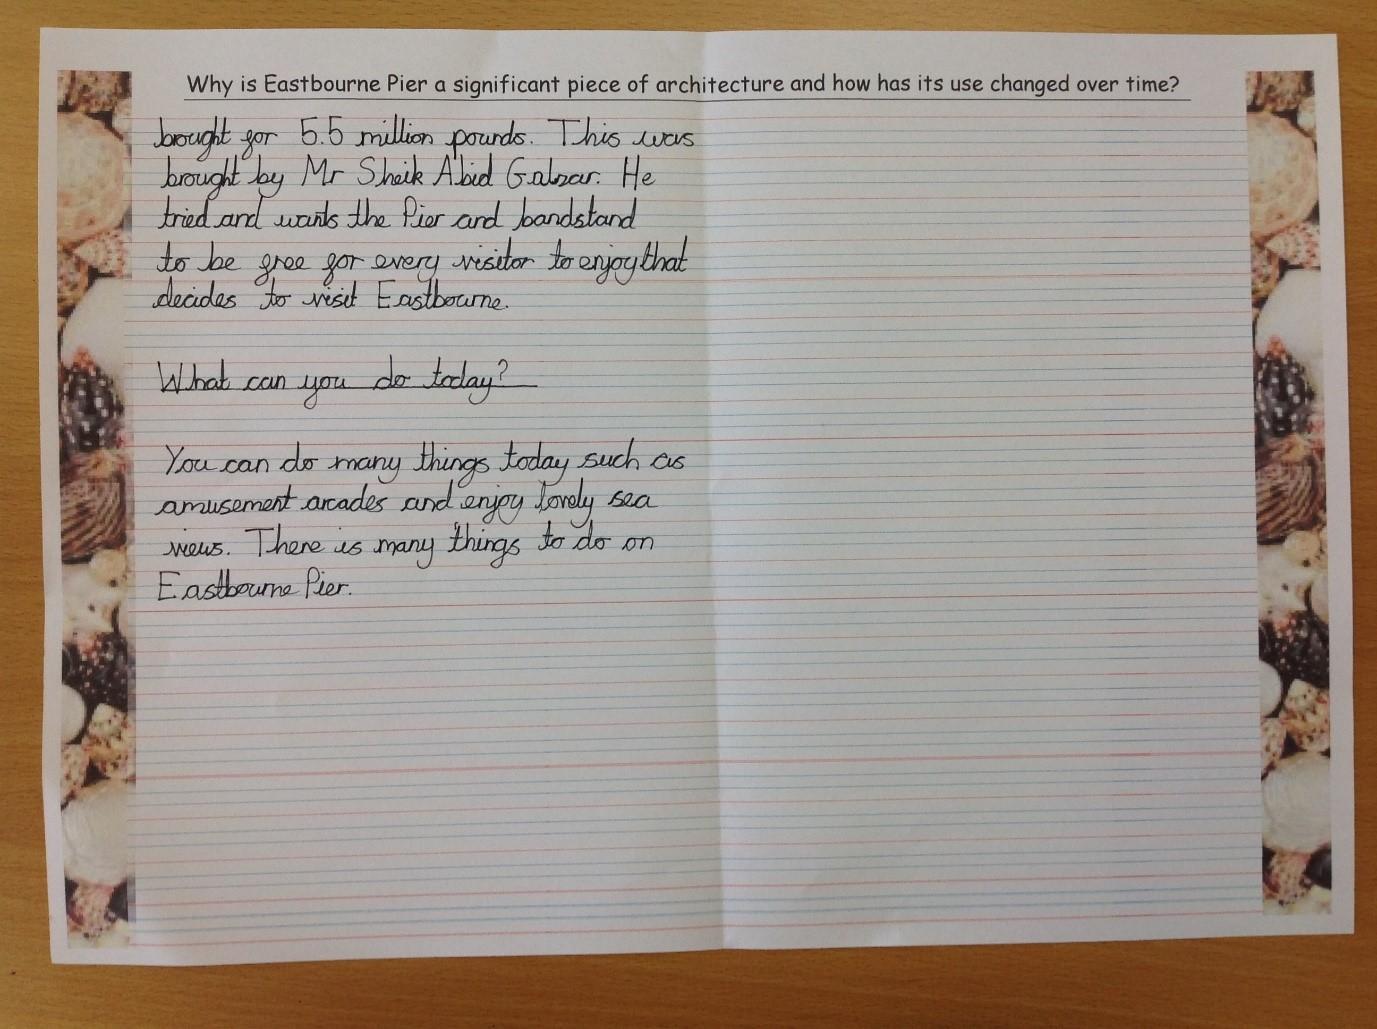 Why is Eastbourne Pier a significant piece of architecture and how has its use changed over time?
brought for 5.5 million pounds. This was
brought by Mr Sheik Abid Galzar. He
tried and wants the Pier and bandstand
to be free for every visitor to enjoy that
decides to visit Eastbourne.
What can you do today?
You can do many things today such as
amusement arcades and enjoy lovely sea
views. There is many things to do on
Eastbourne Pier.